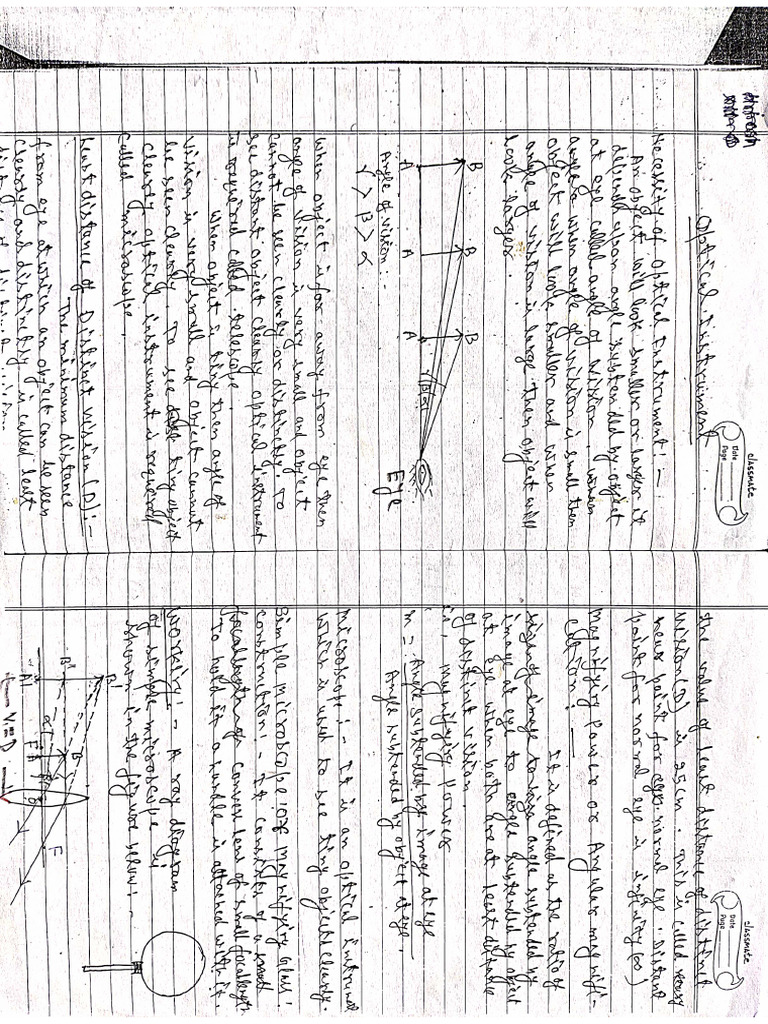 classmate
Date
Page
Optical Instrument
Necessity of Optical Instrument :-
An object will look smaller or larger it
depends upon angle subtended by object
at eye called angle of vision. When
angle when angle of vision is small then
object will look smaller and when
angle of vision is large then object will
look larger.
B B B
A A A
Eye
Angle of vision :-
γ > β > α
When object is far away from eye then
angle of vision is very small and object
cannot be seen clearly or distinctly. To
see distant object clearly optical instrument
is required called telescope.
When object is tiny then angle of
vision is very small and object cannot
be seen clearly. To see tiny object
clearly optical instrument is required
called microscope.
Least distance of Distinct vision (D) :-
The minimum distance
from eye at which an object can be seen
clearly and distinctly is called least
classmate
Date
Page
the value of least distance of distinct
vision (D) is 25cm. This is called
near point for normal eye. Distant
point for normal eye is infinity (∞)
Magnifying Power or Angular magnifi-
cation :-
It is defined as the ratio of
angle subtended by
image at eye to angle subtended by object
at eye when both are at least distance
of distinct vision.
i.e, magnifying power
m = Angle subtended by image at eye
Angle subtended by object at eye.
Microscope :- It is an optical instrument
which is used to see tiny objects clearly.
Simple microscope or magnifying glass :
construction :- It consists of a
convex lens of small focal length
To hold it a handle is attached with it.
Working :- A ray diagram
of simple microscope is
shown in the figure below :-
B'
B"
B
A'
A
F
F
α
β
V = D